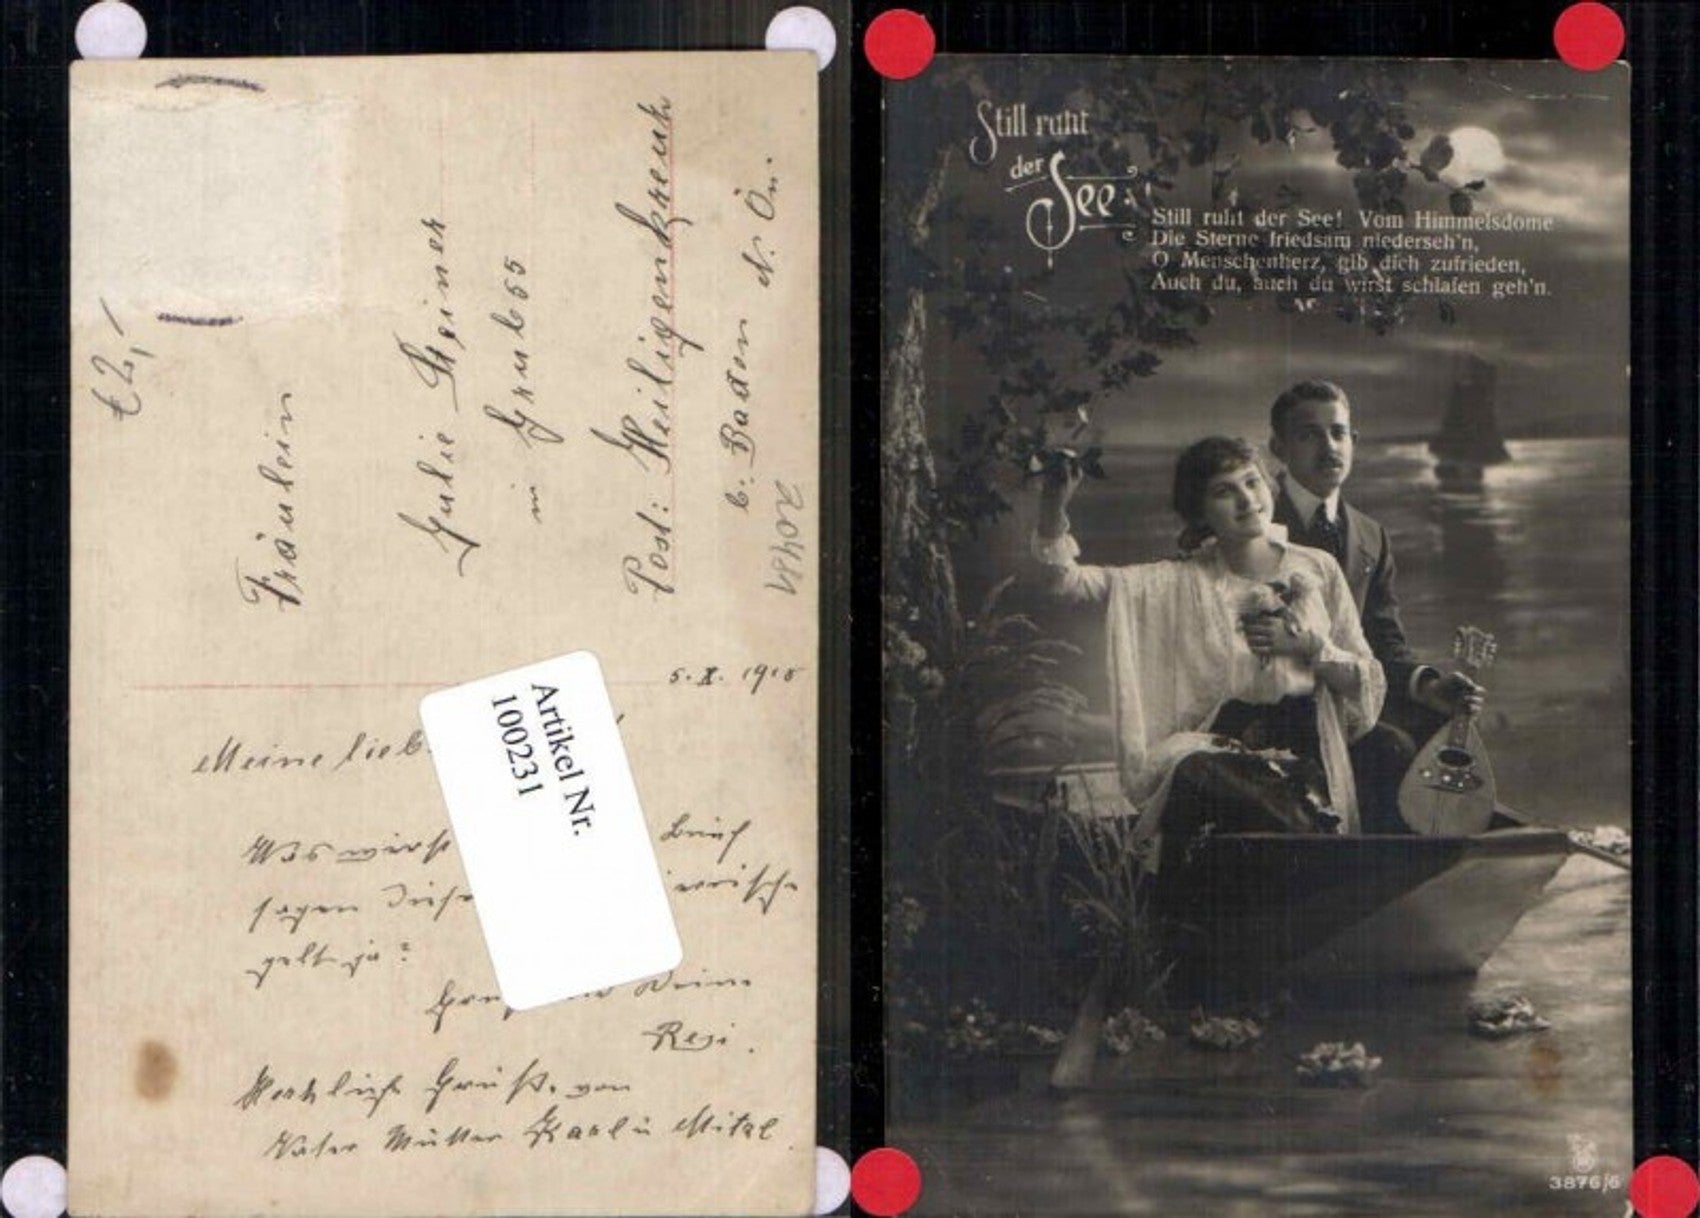 € 2,-
Fräulein
Julie Steiner
in Grub 55
Post: Heiligenkreuz
b. Baden N. Ö.
20484
5. X. 1915
Meine lieb
Was wirst Brief
sagen diese
gelt ja?
Deine
Resi.
Herzliche Grüße von
Vater Mutter Karl u Mitzl.
Artikel Nr.
100231
Still ruht
der
See.
Still ruht der See! Vom Himmelsdome
Die Sterne friedsam niederseh'n,
O Menschenherz, gib dich zufrieden,
Auch du, auch du wirst schlafen geh'n.
3876/6